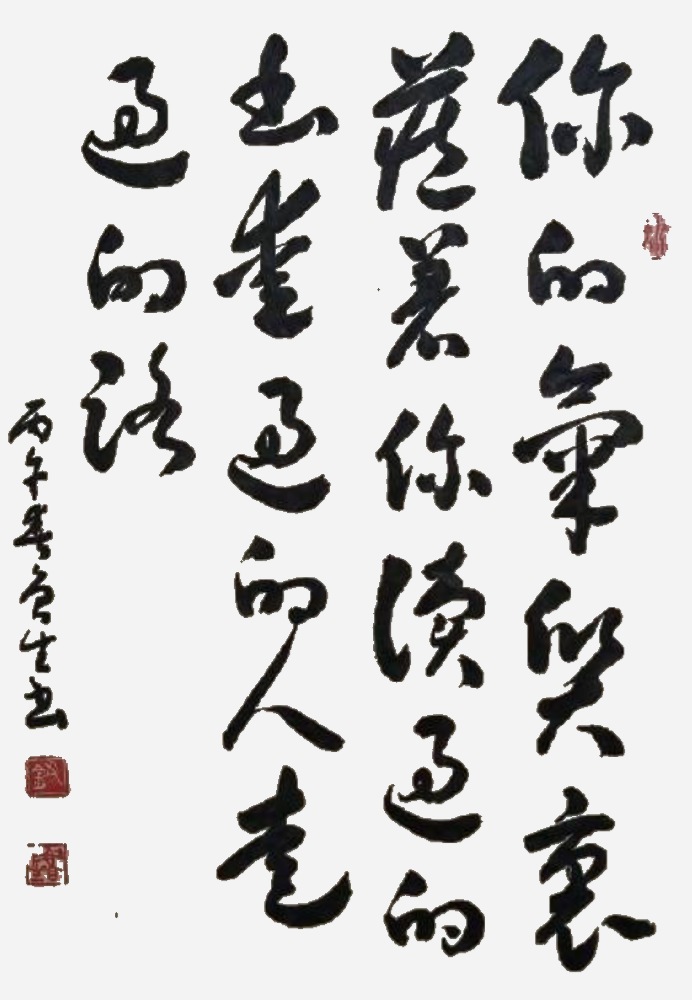 你的氣質裏
藏著你讀過的
書愛過的人走
過的路
丙午春生書